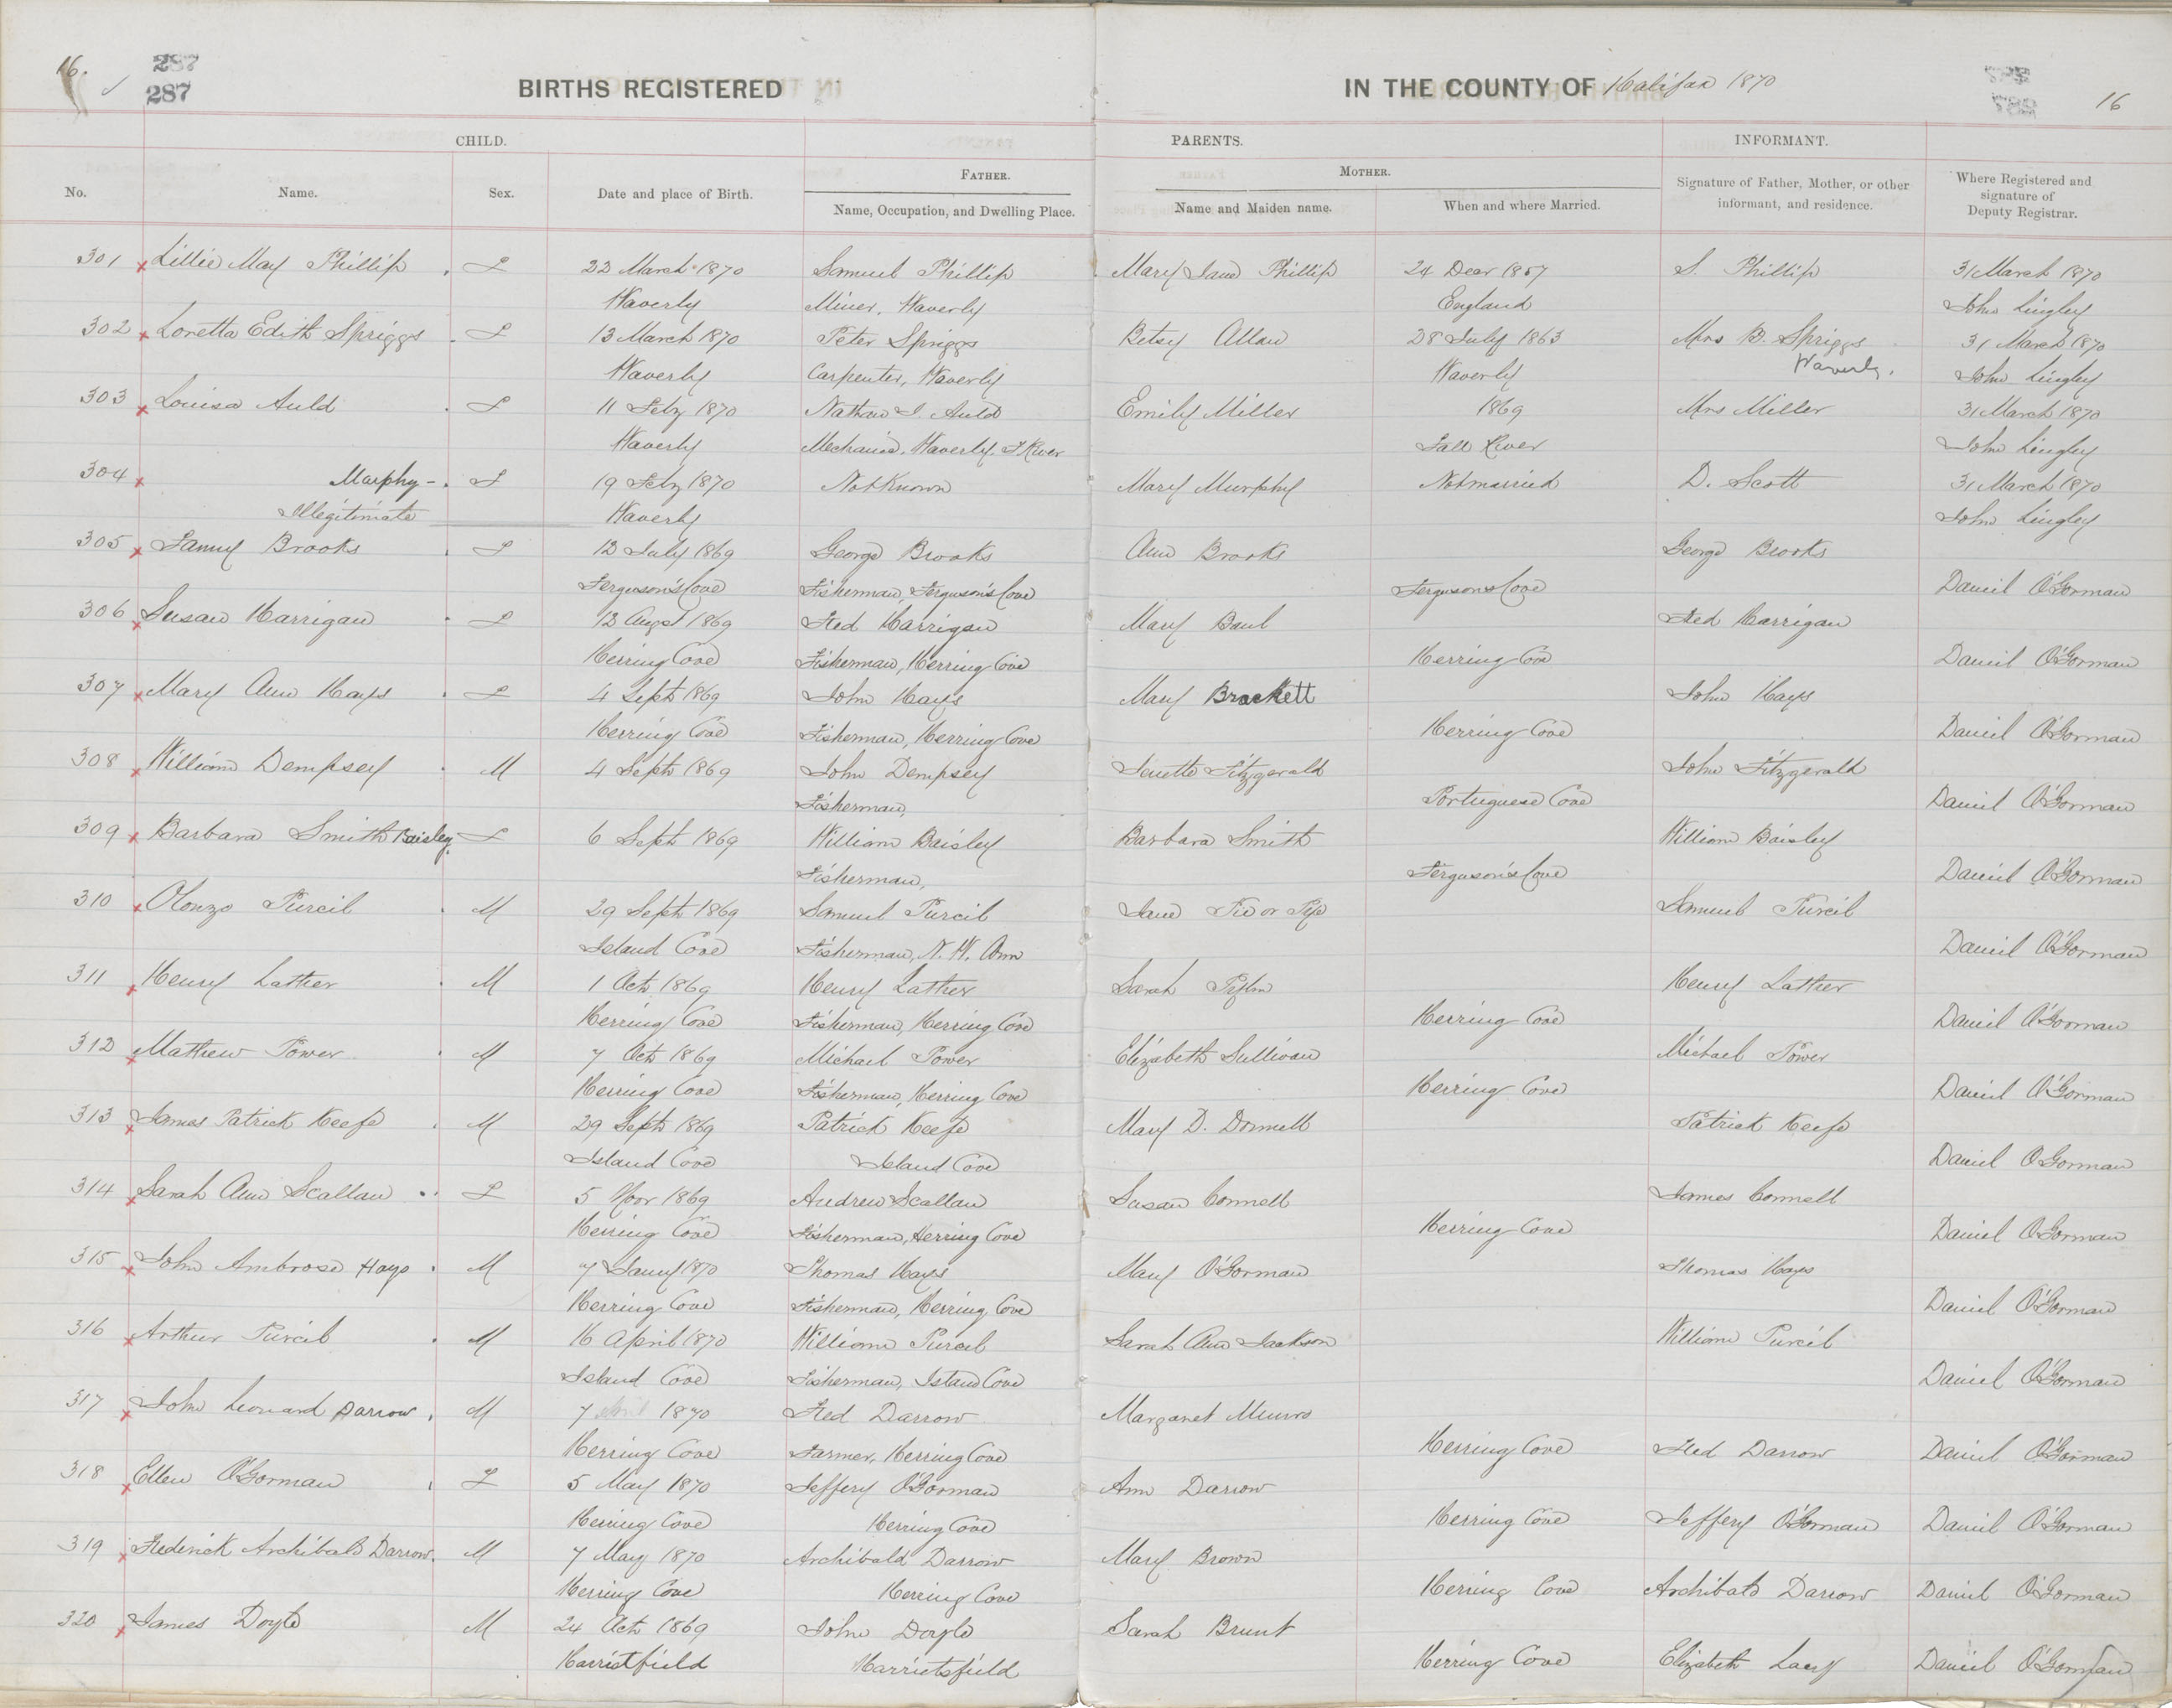 16. 287 287
BIRTHS REGISTERED IN THE COUNTY OF Halifax 1870 16
CHILD. PARENTS. INFORMANT.
No. Name. Sex. Date and place of Birth. FATHER. Name, Occupation, and Dwelling Place. MOTHER. Name and Maiden name. When and where Married. Signature of Father, Mother, or other informant, and residence. Where Registered and signature of Deputy Registrar.
301 Lillie May Phillip F 22 March 1870 Samuel Phillip Mary Jane Phillip 24 1857 S. Phillip 31 March 1870
Waverly Miner, Waverly England John Lingley
302 Loretta Edith Spriggs F 13 March 1870 Peter Spriggs Betsy Allan 28 July 1863 Mrs B. Spriggs 31 March 1870
Waverly Carpenter, Waverly Waverly Waverly. John Lingley
303 Louisa Auld F 11 Feby 1870 Nathan Auld Emily Miller 1869 Mrs Miller 31 March 1870
Waverly Mechanic, Waverly, F River Fall River John Lingley
304 Murphy - F 19 Feby 1870 Not Known Mary Murphy Not married D. Scott 31 March 1870
Illegitimate Waverly John Lingley
305 Fanny Brooks F 12 July 1869 George Brooks Ann Brooks George Brooks
Ferguson's Cove Fisherman, Ferguson's Cove Ferguson's Cove Daniel O'Gorman
306 Susan Harrigan F 12 Augst 1869 Fred Harrigan Mary Fred Harrigan
Herring Cove Fisherman, Herring Cove Herring Cove Daniel O'Gorman
307 Mary Ann Hays F 4 Sept 1869 John Hays Mary Brackett John Hays
Herring Cove Fisherman, Herring Cove Herring Cove Daniel O'Gorman
308 William Dempsey M 4 Sept 1869 John Dempsey Fitzgerald John Fitzgerald
Fisherman, Portuguese Cove Daniel O'Gorman
309 Barbara Smith Baisley F 6 Sept 1869 William Baisley Barbara Smith William Baisley
Fisherman, Ferguson's Cove Daniel O'Gorman
310 Olonzo Purcil M 29 Sept 1869 Samuel Purcil Jane or Samuel Purcil
Island Cove Fisherman, N. W. Arm Daniel O'Gorman
311 Henry Latter M 1 Oct 1869 Henry Latter Sarah Henry Latter
Herring Cove Fisherman, Herring Cove Herring Cove Daniel O'Gorman
312 Mathew Power M 7 Oct 1869 Michael Power Elizabeth Sullivan Michael Power
Herring Cove Fisherman, Herring Cove Herring Cove Daniel O'Gorman
313 James Patrick Keefe M 29 Sept 1869 Patrick Keefe Mary D. Donnell Patrick Keefe
Island Cove Island Cove Daniel O'Gorman
314 Sarah Ann Scallan F 5 Novr 1869 Andrew Scallan Susan Connell James Connell
Herring Cove Fisherman, Herring Cove Herring Cove Daniel O'Gorman
315 John Ambrose Hays M 7 Jany 1870 Thomas Hays Mary O'Gorman Thomas Hays
Herring Cove Fisherman, Herring Cove Daniel O'Gorman
316 Arthur Purcil M 16 April 1870 William Purcil Sarah Ann Jackson William Purcil
Island Cove Fisherman, Island Cove Daniel O'Gorman
317 John Leonard Darrow M 7 1870 Fred Darrow Margaret Munro
Herring Cove Farmer, Herring Cove Herring Cove Fred Darrow Daniel O'Gorman
318 Ellen O'Gorman F 5 May 1870 Jeffery O'Gorman Ann Darrow
Herring Cove Herring Cove Herring Cove Jeffery O'Gorman Daniel O'Gorman
319 Frederick Archibald Darrow M 7 May 1870 Archibald Darrow Mary Brown
Herring Cove Herring Cove Herring Cove Archibald Darrow Daniel O'Gorman
320 James Doyle M 24 Oct 1869 John Doyle Sarah Brunt
Harristfield Harrietsfield Herring Cove Elizabeth Lacy Daniel O'Gorman